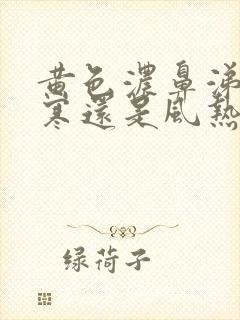 黄色濃鼻涕
寒還是風熱
绿荷子